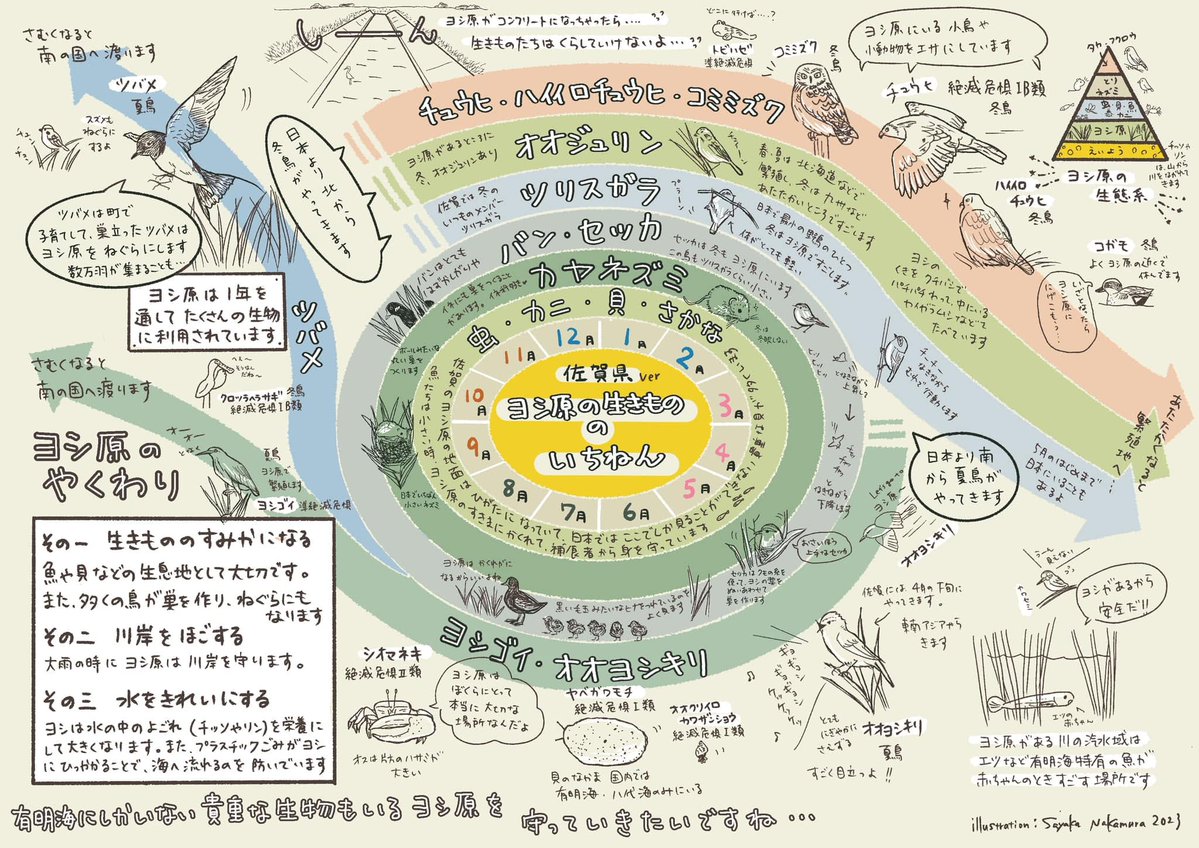 さむくなると
南の国へ渡ります
ツバメ
夏鳥
チュン
チュン
スズメも
ねぐらに
するよ
しーん
ヨシ原がコンクリートになっちゃったら・・・・??
生きものたちはくらしていけないよ・・・??
どこに行けば・・・・?
トビハゼ
準絶滅危惧
コミミズク
冬鳥
ヨシ原にいる小鳥や
小動物をエサにしています
チュウヒ 絶滅危惧IB類
冬鳥
タカ フクロウ
とり
ネズミ
虫・貝・魚
カニ
ヨシ原
えいよう
チッソや
リン
は、山から
川をながれて
きます
ヨシ原の
生態系
ハイイロ
チュウヒ
冬鳥
コガモ 冬鳥
よくヨシ原の近くで
休んでます
日本より北から
冬鳥がやってきます
ツバメは町で
子育てして、巣立ったツバメは
ヨシ原をねぐらにします
数万羽が集まることも…
ヨシ原は1年を
通してたくさんの生物
に利用されています
ツバメ
チュウヒ・ハイイロチュウヒ・コミミズク
オオジュリン
ヨシ原があるところに
冬、オオジュリンあり
春・夏は北海道などで
繁殖し、冬は九州など
あたたかいところですごします
ヨシの
くきをクチバシで
パチパチわって、中にいる
カイガラムシなどを
たべます
ツリスガラ
佐賀では冬の
いつものメンバー
ツリスガラ
プラーン
日本で最小の野鳥のひとつ
冬はヨシ原ですごします。
体がとっても軽い
チーチー
なきながら
むれで行動します
5月のはじめまで
日本にいることも
あるよ
あたたかくなると
繁殖地へ
バン・セッカ
バンはとても
はずかしがりや
セッカは冬もヨシ原にいます
この鳥もツリスガラくらい小さい
となきながら上昇して
となきながら
下降します
カヤネズミ
冬は
冬眠しない
ボールみたいな
丸い巣を
つくります
日本でいちばん
小さいネズミ
虫・カニ・貝・さかな
12月
1月
2月
3月
4月
5月
6月
7月
8月
9月
10月
11月
佐賀県ver
ヨシ原の生きもの
の
いちねん
佐賀のヨシ原の地面はひがたになっていて、日本ではここでしか見ることができない
魚たちは小さい時ヨシ原のすきまにかくれて、捕食者から身を守っています
ヨシ原はかくれがに
なるからいいよね
黒い毛玉みたいなヒナをつれているのを
よく見ます
おさいほう
上手なセッカ
セッカはクモの糸を
使って、ヨシの葉を
ぬいあわせて
巣を作ります
ヨシゴイ・オオヨシキリ
日本より南
から夏鳥が
やってきます
オオヨシキリ
佐賀には4月の下旬に
やってきます。
東南アジアから
きます
ギョギョシ
ギョギョシ
ケッケッ
とても
にぎやかに
さえずる
オオヨシキリ
夏鳥
すごく目立つよ!!
ヨシがあるから
安全だ!!
エツの
赤ちゃん
ヨシ原がある川の汽水域は
エツなど有明海特有の魚が
赤ちゃんのときすごす場所です
さむくなると
南の国へ渡ります
クロツラヘラサギ 冬鳥
絶滅危惧IB類
オーオー
夏鳥
ヨシ原で
繁殖します
ヨシゴイ 準絶滅危惧
ヨシ原の
やくわり
その一 生きもののすみかになる
魚や貝などの生息地として大切です。
また、多くの鳥が巣を作り、ねぐらにも
なります
その二 川岸をほごする
大雨の時にヨシ原は川岸を守ります。
その三 水をきれいにする
ヨシは水の中のよごれ(チッソやリン)を栄養に
して大きくなります。また、プラスチックごみがヨシ
にひっかかることで、海へ流れるのを防いでいます
シオマネキ
絶滅危惧II類
オスは片方のハサミが
大きい
ヨシ原は
ぼくらにとって
本当に大切な
場所なんだよ
ヤベガワモチ
絶滅危惧I類
貝のなかま 国内では
有明海・八代海のみにいる
オオクリイロ
カワザンショウ
絶滅危惧I類
有明海にしかいない貴重な生物もいるヨシ原を 守っていきたいですね・・・
illustration: Sayaka Nakamura 2023